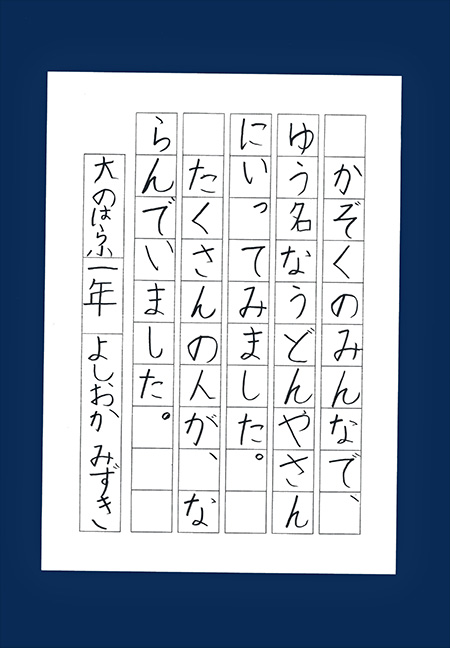 かぞくのみんなで、
ゆう名なうどんやさん
にいってみました。
たくさんの人が、な
らんでいました。
大のはら小一年 よしおか みずき